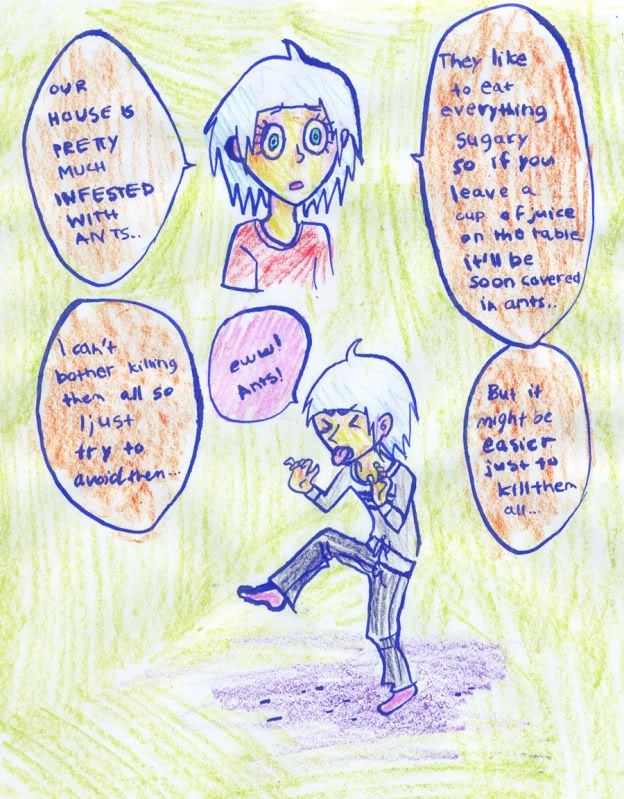 OUR
HOUSE IS
PRETTY
MUCH
INFESTED
WITH
ANTS..
They like
to eat
everything
sugary
so if you
leave a
cup of juice
on the table
it'll be
soon covered
in ants..
I can't
bother killing
them all so
I just
try to
avoid them...
eww!
Ants!
But it
might be
easier
just to
kill them
all...